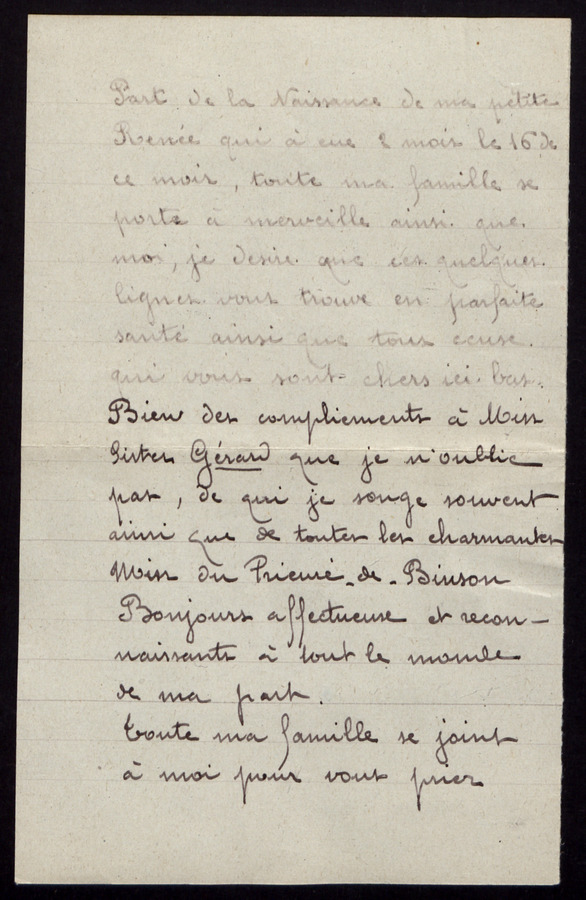 Part de la Naissance de ma petite
Renée qui à eue 2 mois le 16 de
ce mois, toute ma famille se
porte à merveille ainsi que
moi, je desire que ces quelques
lignes vous trouve en parfaite
santé ainsi que tous ceuse
qui vous sont chers ici-bas.
Bien des compliements à Miss
Sister Gérard que je n'oublie
pas, de qui je songe souvent
ainsi que de toutes les charmantes
Miss du Prieuré-de-Binson
Bonjours affectueuse et recon-
naissants à tout le monde
de ma part.
Toute ma famille se joint
à moi pour vous prier